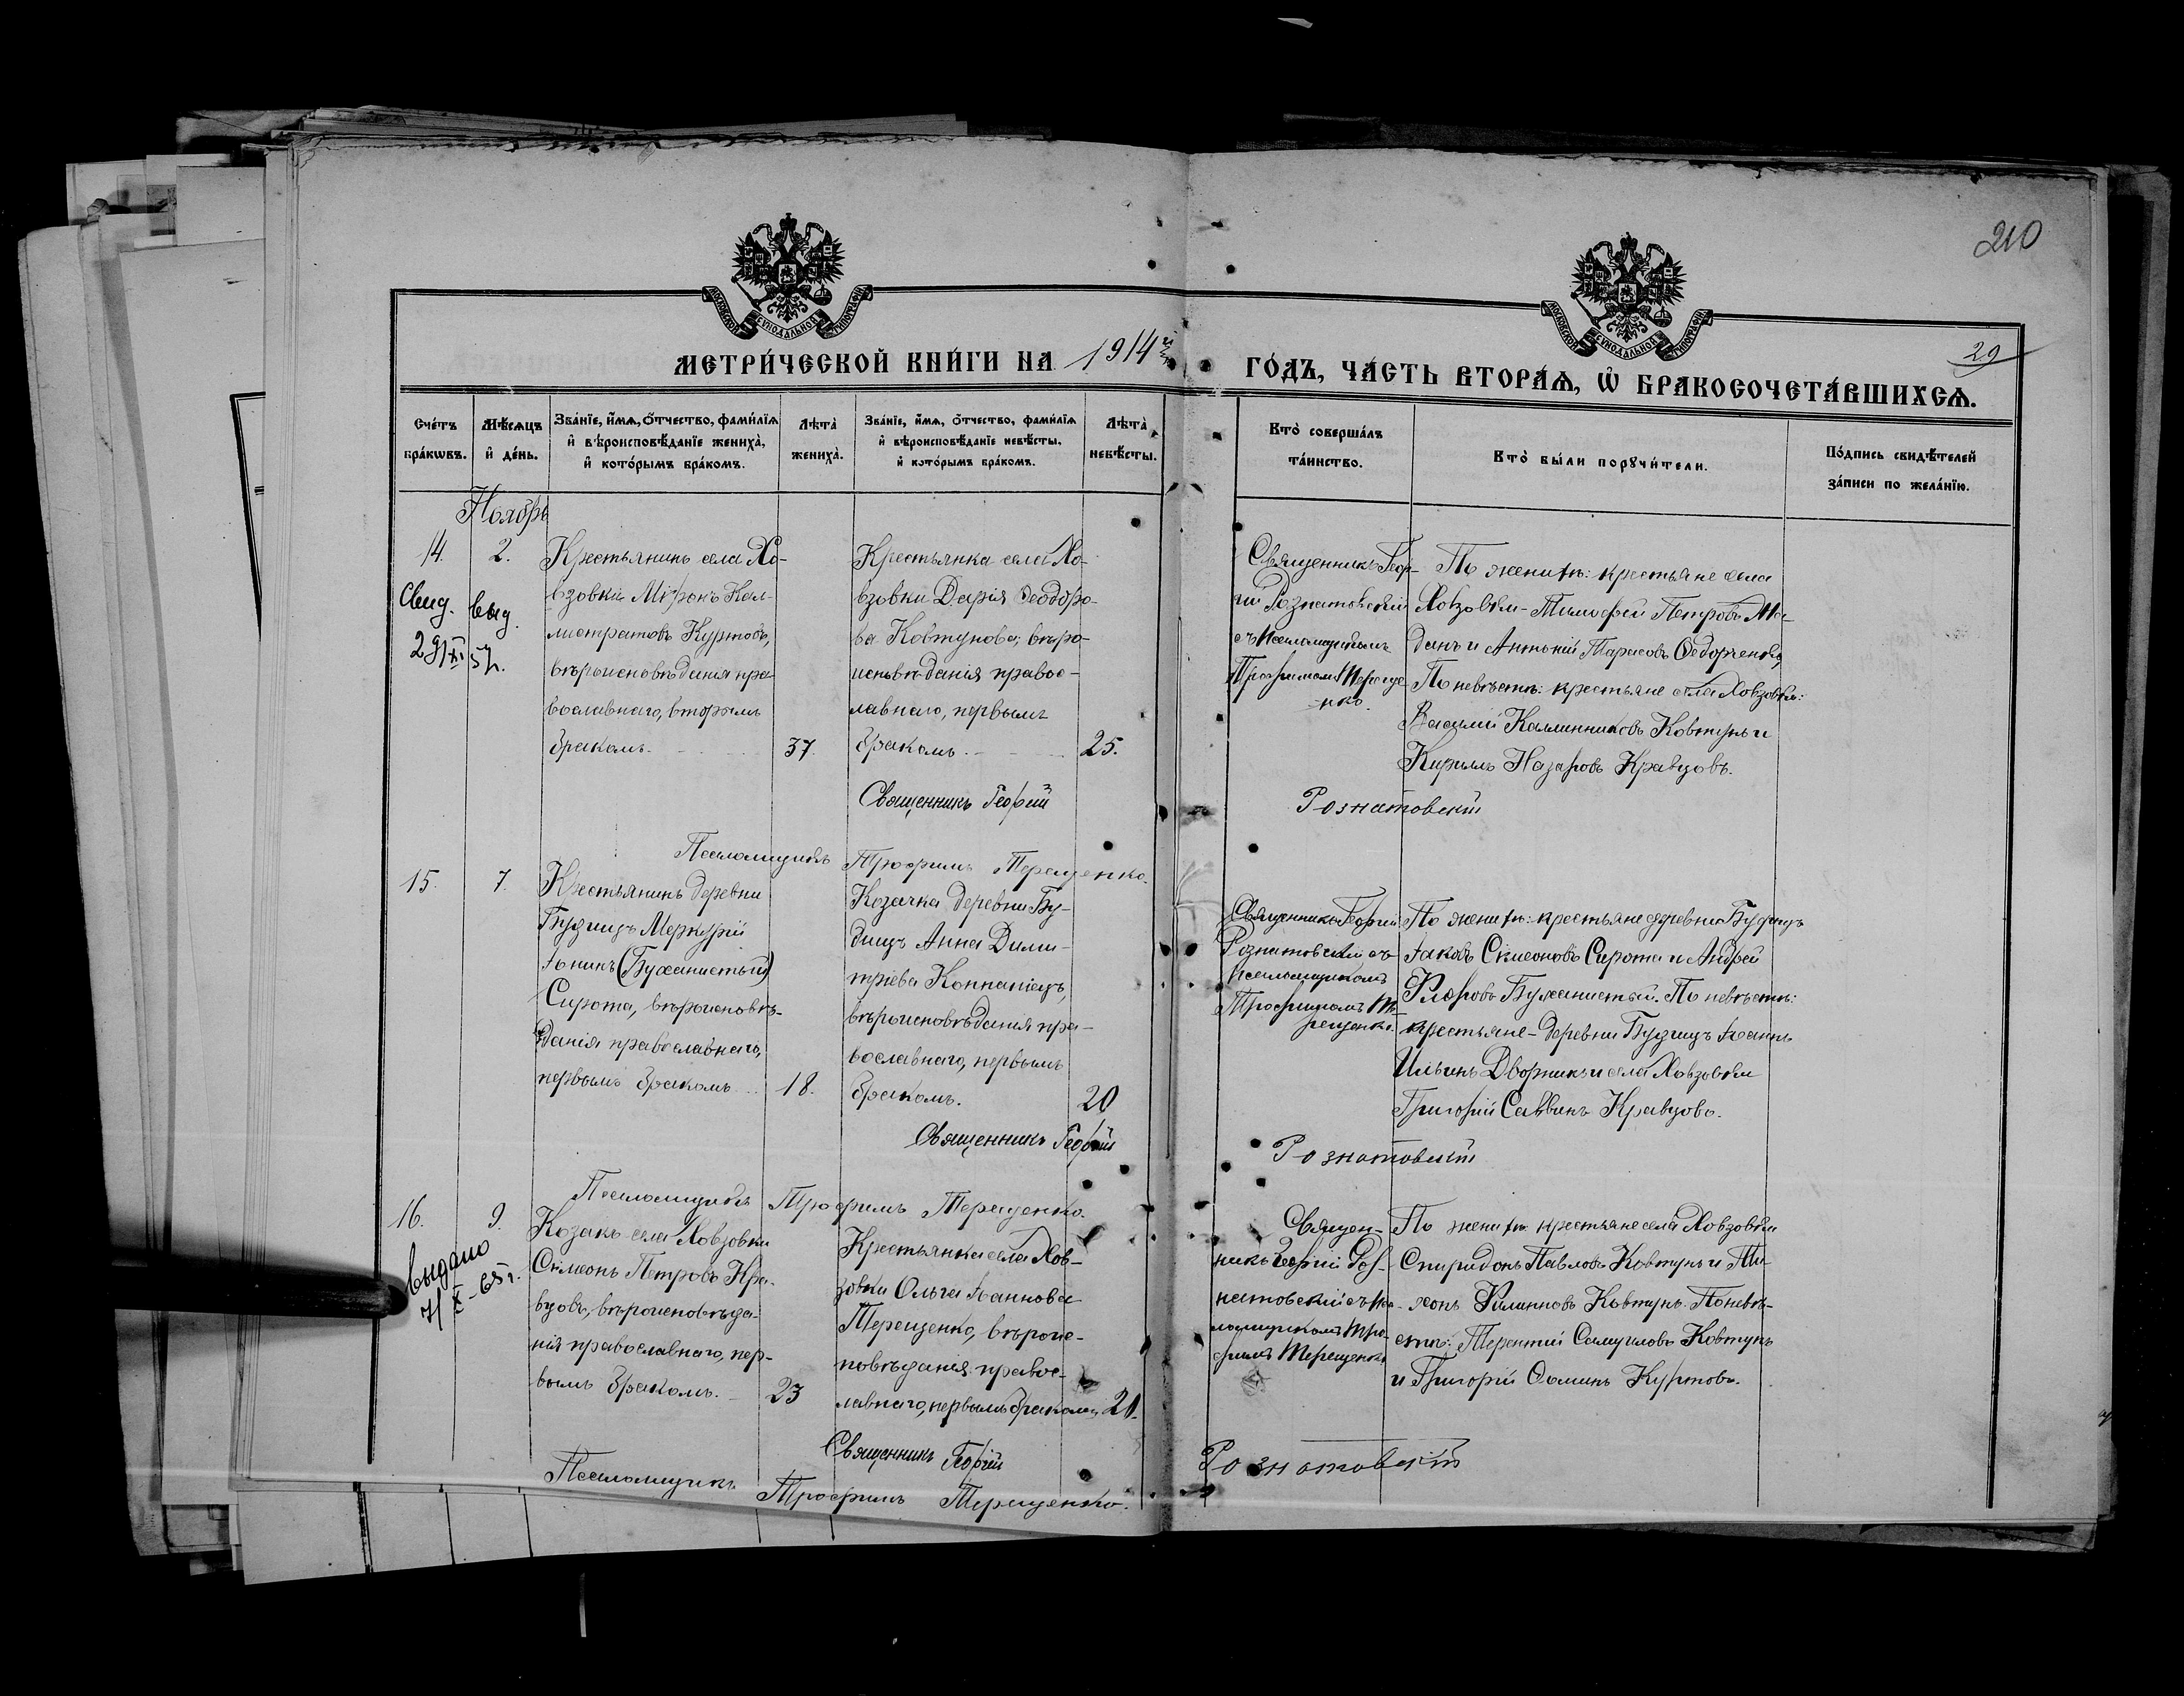 210
29
МОСКОВСКОЙ СѴНОДАЛЬНОЙ ТИПОГРАФІИ
МОСКОВСКОЙ СѴНОДАЛЬНОЙ ТИПОГРАФІИ
МЕТРИ́ЧЕСКОЙ КНИ́ГИ НА 1914й
ГО́ДЪ, ЧА́СТЬ ВТОРА́Ѧ, Ѡ҆ БРАКОСОЧЕТА́ВШИХСѦ.
Сче́тъ бра́кѡвъ.
Мѣ́сяцъ и҆ де́нь.
Зва́нїе, и҆́мѧ, ѻ҆́тчество, фами́лїѧ
и҆ вѣроисповѣ́данїе жениха̀,
и҆ кото́рымъ бра́комъ.
Лѣта̀ жениха̀.
Зва́нїе, и҆́мѧ, ѻ҆́тчество, фами́лїѧ
и҆ вѣроисповѣ́данїе невѣ́сты,
и҆ кото́рымъ бра́комъ.
Лѣта̀ невѣ́сты.
Кто̀ соверша́лъ
та́инство.
Кто̀ бы́ли порꙋчи́тели.
По́дпись свидѣ́телей
за́писи по жела́нїю.
Ноябрь
14.
2.
Свид. выд.
29/XI 57.
Крестьянинъ села Хо-
взовки Міронъ Кал-
листратовъ Куртовъ,
вѣроисповѣданія пра-
вославнаго, вторымъ
бракомъ.
37.
Крестьянка села Хо-
взовки Дарія Ѳеодоро-
ва Ковтунова, вѣро-
исповѣданія правос-
лавнаго, первымъ
бракомъ.
25.
Священникъ Геор-
гій Рознатовскій
съ псаломщикомъ
Трофимомъ Тереще-
нко.
По женихѣ: крестьяне села
Ховзовки - Тимофей Петровъ
и Антоній Тарасовъ Ѳедорченковъ
По невѣстѣ: крестьяне села Ховзовки:
Василій Каллинниковъ Ковтунъ и
Кириллъ Назаровъ Кравцовъ.
Священникъ Георгій
Рознатовскій
Псаломщикъ Трофимъ Терещенко.
15.
7.
Крестьянинъ деревни
Будищъ Меркурій
(Буханистый)
Сирота, вѣроисповѣ-
данія православнаго,
первымъ бракомъ
18.
Козачка деревни Бу-
дищъ Анна Дими-
тріева Коппаніецъ,
вѣроисповѣданія пра-
вославнаго, первымъ
бракомъ.
20
Священникъ Георгій
Рознатовскій съ
псаломщикомъ
Трофимомъ Те-
рещенко.
По женихѣ: крестьяне деревни Будищъ
Іаковъ Симеоновъ Сирота и Андрей
Флоровъ Буханистый. По невѣстѣ:
крестьяне - деревни Будищъ Іоаннъ
Ильинъ Дворникъ и села Ховзовки
Григорій Саввинъ Кравцовъ.
Священникъ Георгій
Рознатовскій
Псаломщикъ Трофимъ Терещенко.
16.
9.
Выдано
7/X-65г.
Козакъ села Ховзовки
Симеонъ Петровъ Кра-
вцовъ, вѣроисповѣда-
нія православнаго, пер-
вымъ бракомъ.
23
Крестьянка села Хов-
зовки Ольга Іоаннова
Терещенко, вѣроис-
повѣданія правос-
лавнаго, первымъ бракомъ,
21.
Священ-
никъ Георгій Роз-
натовскій съ пса-
ломщикомъ Тро-
фимъ Терещенко
По женихѣ крестьяне села Ховзовки
Спиридонъ Павловъ Ковтунъ и Ти-
хонъ Филипповъ Ковтунъ. По невѣ-
стѣ: Терентій Самуиловъ Ковтунъ
и Григорій Ѳоминъ Куртовъ.
Священникъ Георгій
Рознатовскій
Псаломщикъ Трофимъ Терещенко.